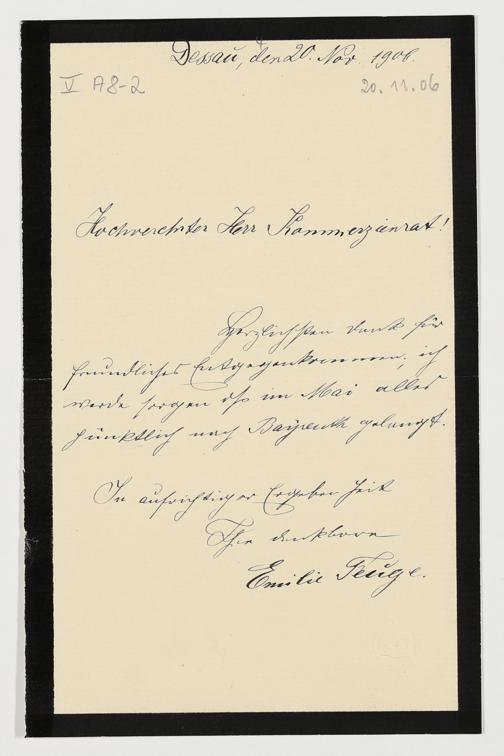 Dessau, den 20. Nov 1906.
V A8-2
20.11.06
Hochverehrter Herr Kommerzienrat!
Herzlichsten Dank für
freundliches Entgegenkommen, ich
werde sorgen daß im Mai alles
pünktlich nach Bayreuth gelangt.
In aufrichtiger Ergebenheit
Ihre dankbare
Emilie Feuge.